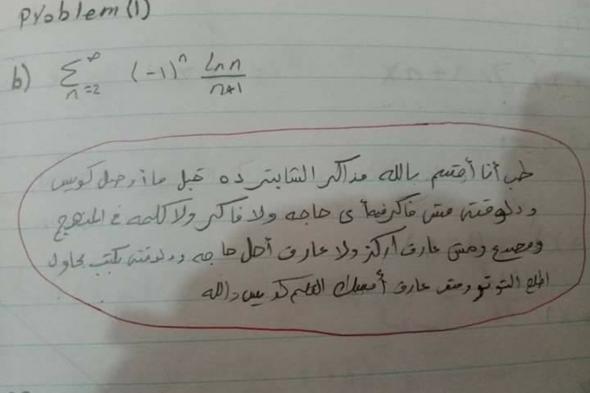 Problem (1)
b) ∑_{n=2}^{∞} (-1)^n \frac{ln n}{n+1}
طب أنا أقسم بالله مذاكر الشابتر ده قبل ما أوصل كويس
ودلوقتى مش فاكر فيه أى حاجه ولا فاكر ولا كلمه فى المنهج
ومصدع ومش عارف أركز ولا عارف أحل حاجه ودلوقتى بكتب بحاول
اطلع التوتر ومش عارف أمسك القلم كويس والله